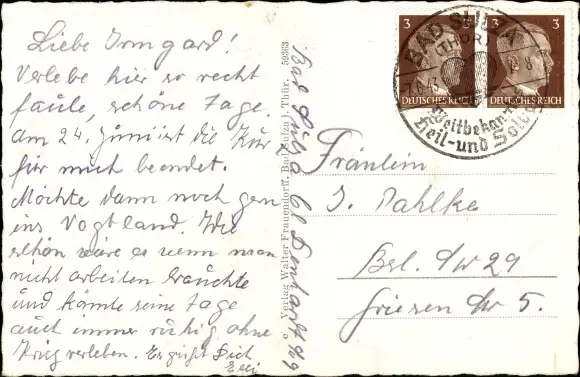 Liebe Irmgard!
Verlebe hier so recht
faule, schöne Tage.
Am 24. Juni ist die Kur
für mich beendet.
Möchte dann noch gern
ins Vogtland. Wie
schön wäre es wenn man
nicht arbeiten brauchte
und könnte seine Tage
auch immer ruhig ohne
Krieg verleben. Es grüßt Dich
Elli
Verlag Walter Frauendorff, Bad Sulza i. Thür. 59363
Bad Sulza
3
3
DEUTSCHES REICH
DEUTSCHES REICH
BAD SULZA
(THÜR)
Weitbekannt
Heil- und Solb
Fräulein
I. Pahlke
Bln. SW 29
Friesen Str 5.